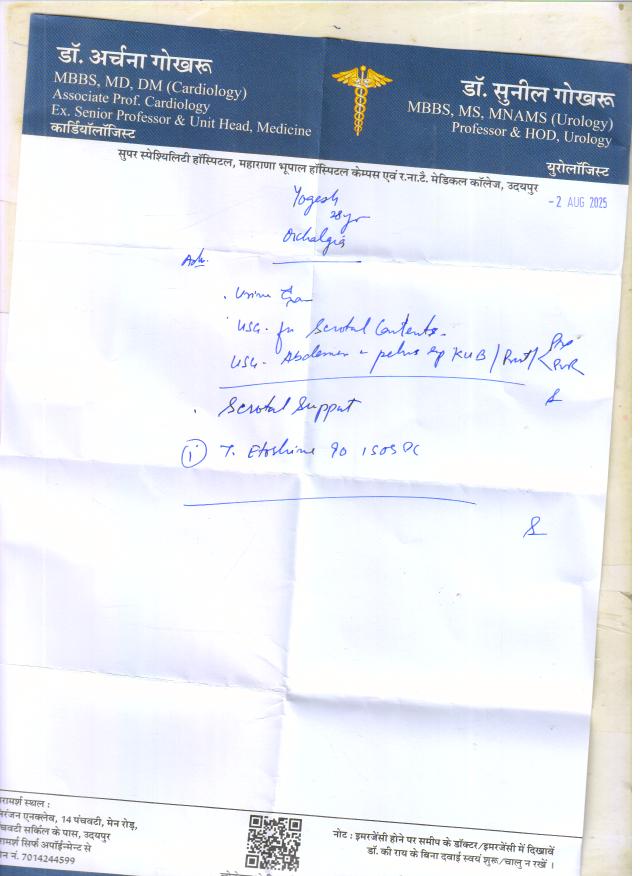 डॉ. अर्चना गोखरू
MBBS, MD, DM (Cardiology)
Associate Prof. Cardiology
Ex. Senior Professor & Unit Head, Medicine
कार्डियॉलॉजिस्ट
डॉ. सुनील गोखरू
MBBS, MS, MNAMS (Urology)
Professor & HOD, Urology
यूरोलॉजिस्ट
सुपर स्पेश्यिलिटी हॉस्पिटल, महाराणा भूपाल हॉस्पिटल केम्पस एवं र.ना.टै. मेडिकल कॉलेज, उदयपुर
- 2 AUG 2025
Yogesh
28 yr
Orchalgia
Adv.
. Urine
USG. for Scrotal Contents.
USG. Abdomen & pelvis KUB / Prost / Pre
PVR
. Scrotal Support
① T. Etoshine 90 1SOS PC
रामर्श स्थल :
रंजन एनक्लेव, 14 पंचवटी, मेन रोड़,
चवटी सर्किल के पास, उदयपुर
रामर्श सिर्फ अपॉईन्मेन्ट से
न नं. 7014244599
नोट : इमरजेंसी होने पर समीप के डॉक्टर/इमरजेंसी में दिखावें
डॉ. की राय के बिना दवाई स्वयं शुरू/चालु न रखें ।